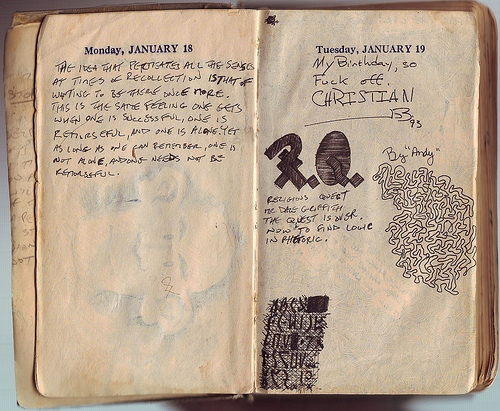 Monday, JANUARY 18
THE IDEA THAT PERTISATES ALL THE SENSES
AT TIMES OF RECOLLECTION IS THAT OF
WAITING TO BE THERE ONCE MORE.
THIS IS THE SAME FEELING ONE GETS
WHEN ONE IS SUCCESSFUL, ONE IS
REMORSEFUL, AND ONE IS ALONE. YET
AS LONG AS ONE CAN REMEMBER, ONE IS
NOT ALONE, AND ONE NEEDS NOT BE
REMORSEFUL.
Tuesday, JANUARY 19
My Birthday, so
Fuck off.
CHRISTIAN
93
R.Q.
By "Andy"
RELIGIOUS QUEST
GRIFFITH
THE QUEST IS OVER.
NOW TO FIND LOGIC
IN RHETORIC.